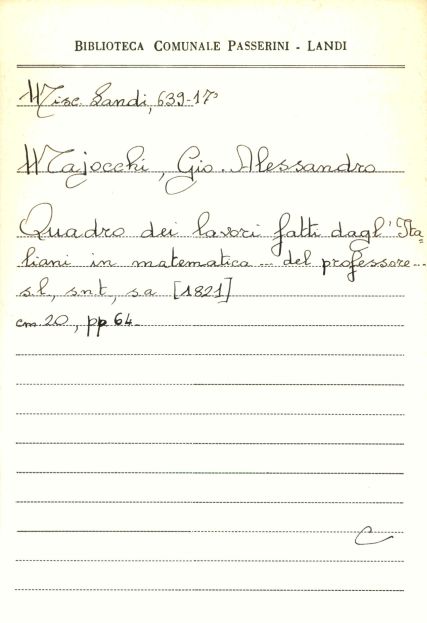 BIBLIOTECA COMUNALE PASSERINI - LANDI
Misc. Landi, 639-17º
Majocchi, Gio. Alessandro
Quadro dei lavori fatti dagl' Ita=
liani in matematica ... del professore ...
s.l, s.n.t, s.a [1821]
cm. 20, pp 64.
C